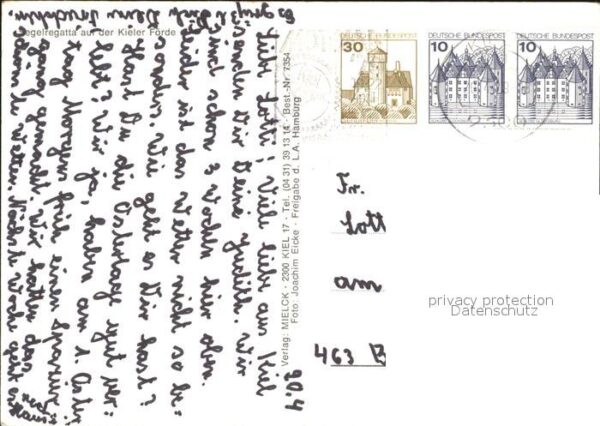 Segelregatta auf der Kieler Förde
Liebe Lotti! Viele liebe am Kiel
senden Dir Deine Judith. Wir
sind schon 3 Wochen hier oben.
Leider ist das Wetter nicht so be-
sonders. Wie geht es Dir
Hast Du die Ostertage gut ver-
lebt? Wir ja, haben am 1. Oster
tag Morgens früh einen Spazier
gang gemacht. Wir hatten
Nächste Woche geht es
Es grüßt Dich Deine
Verlag: MIELCK · 2300 KIEL 17 · Tel. (04 31) 39 13 14 · Best.-Nr. 7354
Foto: Joachim Eicke - Freigabe d. L.A. Hamburg
20.4
DEUTSCHE BUNDESPOST
30
DEUTSCHE BUNDESPOST
10
DEUTSCHE BUNDESPOST
10
Fr.
Lott
am
463 B
privacy protection
Datenschutz